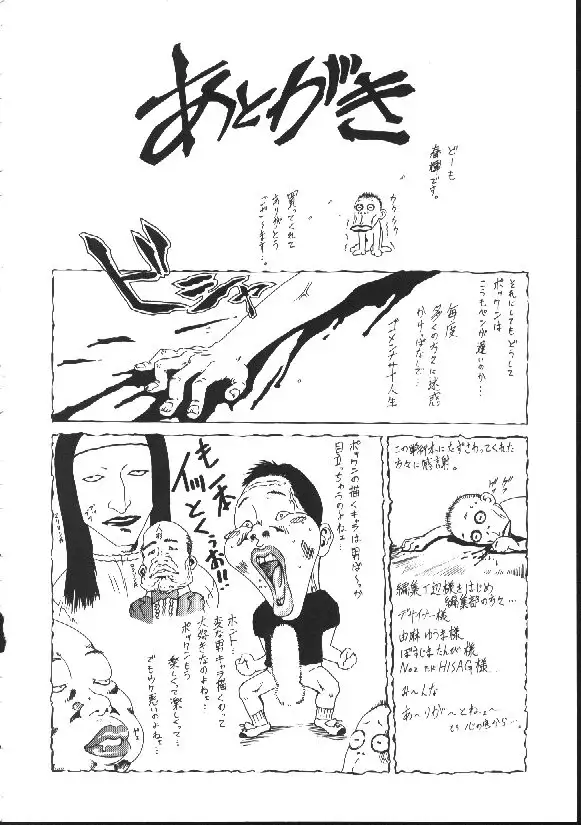 あとがき
どーも
春輝です。
買ってくれて
ありがとう
ございます…。
カクカク
ドシャ
それにしても、どうして
ボックンは
こうもペンが遅いのか…
毎度
多くの方々に迷惑
かけっぱなしで…
ゴメンナサイ人生
ボックンの描くキャラは男ばっか
目立っちゃうのよねェ…
もう一本
イッとくぅぉ!!
ホント…
変な男キャラ描くのって
大好きなのよねェ…
ボックンもう
楽しくって楽しくって…
でもウケ悪いのよねェ…
この単行本にたずさわってくれた
方々に感謝。
ゲブ
編集T辺様をはじめ
編集部の方々…
デザイナー様
由麻ゆうま様
ぼうじまたんが様
HISAG様…
み〜んな
あ〜りが〜とねェ〜
心の底から…。